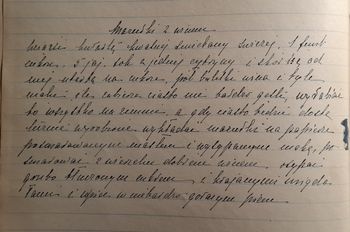 Mazurki z winem
kwartę kwaśnej śmietany świeżej, 1 funt
cukru, 5 jaj, sok z jednej cytryny i skórkę od
niej utartą na cukrze, pół butelki wina i tyle
mąki, ile zabierze ciasto nie bardzo gęste, wyrabiać
to wszystko na zimno, a gdy ciasto będzie dość
wyrobione wykładać mazurki na papierze
posmarowanym masłem i wysypanym mąką, po
smarować z wierzchu dobrem winem, osypać
grubo tłuczonym cukrem i krajanymi migda
łami i upiec w niebardzo gorącym piecu.